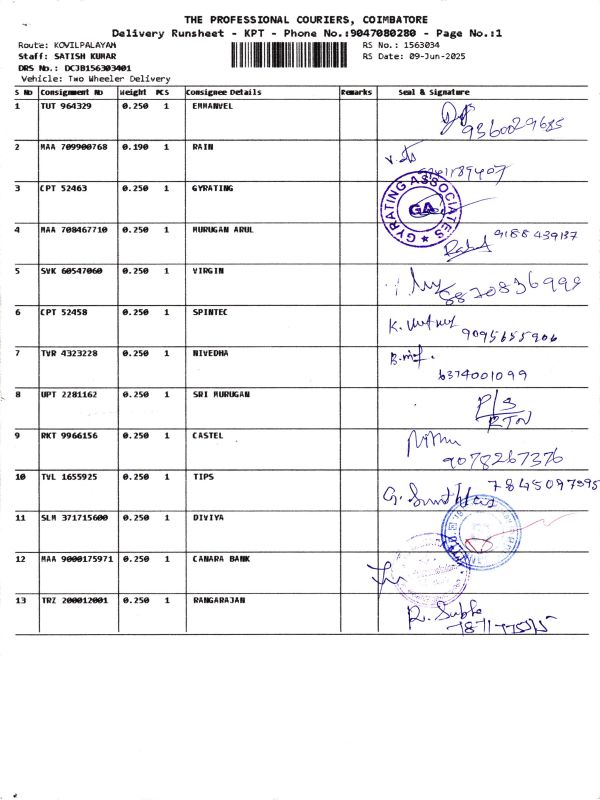 THE PROFESSIONAL COURIERS, COIMBATORE
Delivery Runsheet - KPT - Phone No.:9047080280 - Page No.:1
Route: KOVILPALAYAM RS No.: 1563034
Staff: SATISH KUMAR RS Date: 09-Jun-2025
DRS No.: DCJB156303401
Vehicle: Two Wheeler Delivery
S No Consignment No Weight PCS Consignee Details Remarks Seal & Signature
1 TUT 964329 0.250 1 EMMANVEL 9360029685
2 MAA 709900768 0.190 1 RAIN
3 CPT 52463 0.250 1 GYRATING GYRATING ASSOCIATES GA
4 MAA 708467710 0.250 1 MURUGAN ARUL 9188439137
5 SVK 60547060 0.250 1 VIRGIN 8870836999
6 CPT 52458 0.250 1 SPINTEC K. 9095655906
7 TVR 4323228 0.250 1 NIVEDHA 6374001099
8 UPT 2281162 0.250 1 SRI MURUGAN P/S RTN
9 RKT 9966156 0.250 1 CASTEL 9078267376
10 TVL 1655925 0.250 1 TIPS G. 7845097595
11 SLM 371715600 0.250 1 DIVIYA
12 MAA 9000175971 0.250 1 CANARA BANK
13 TRZ 200012001 0.250 1 RANGARAJAN R.